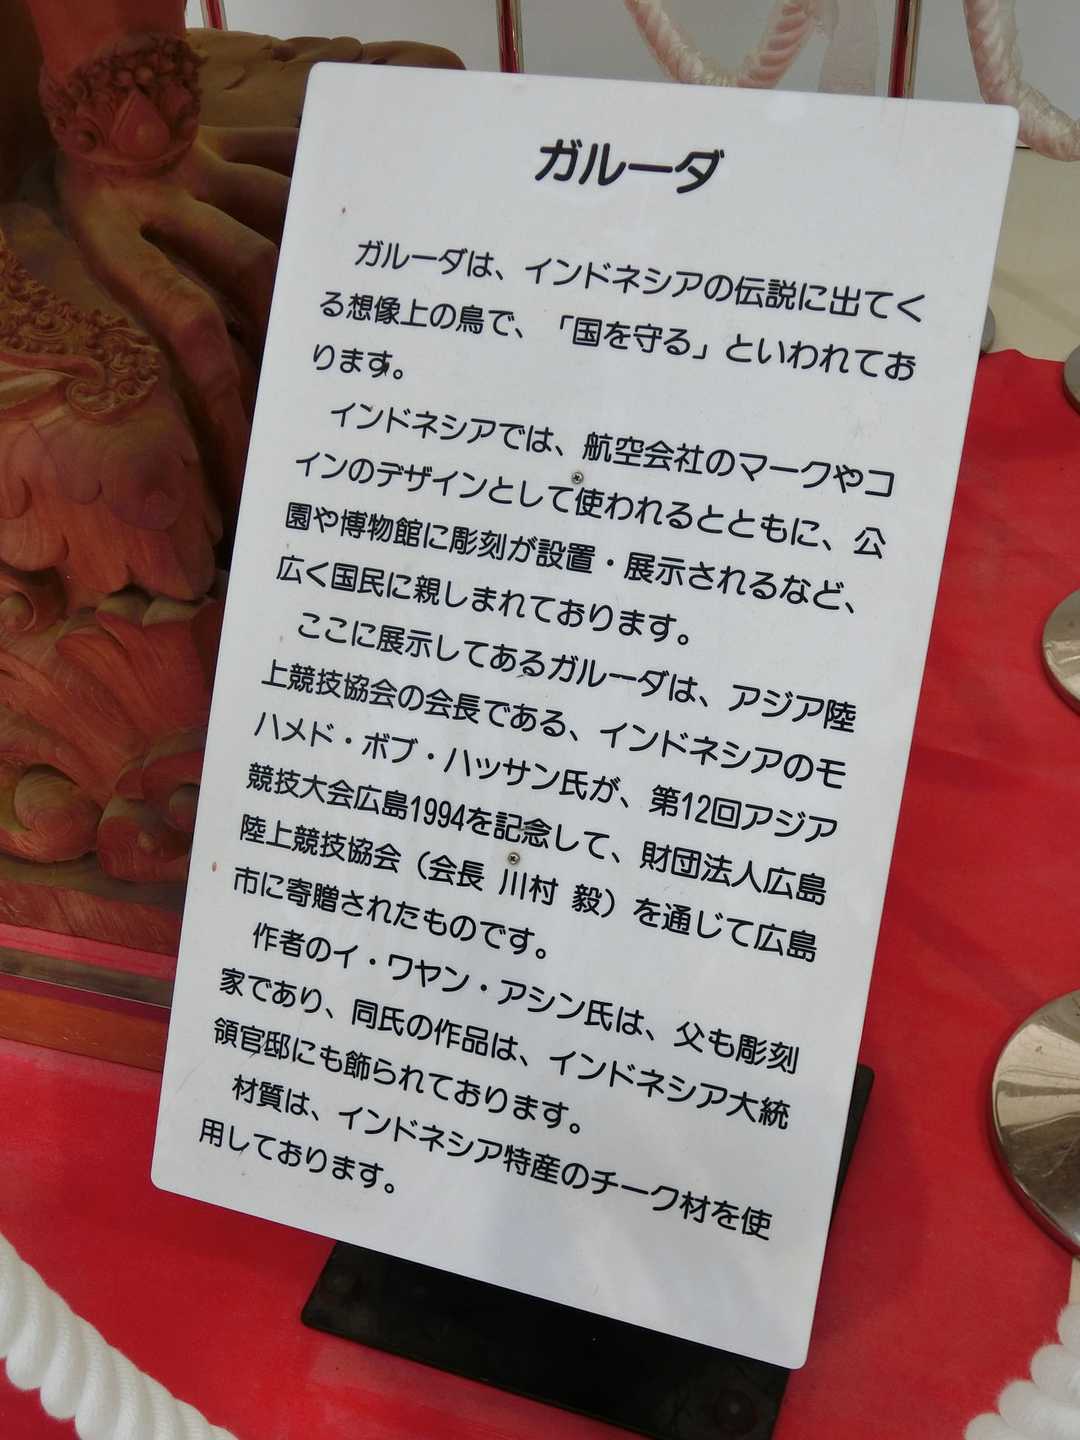 ガルーダ
ガルーダは、インドネシアの伝説に出てく
る想像上の鳥で、「国を守る」といわれてお
ります。
インドネシアでは、航空会社のマークやコ
インのデザインとして使われるとともに、公
園や博物館に彫刻が設置・展示されるなど、
広く国民に親しまれております。
ここに展示してあるガルーダは、アジア陸
上競技協会の会長である、インドネシアのモ
ハメド・ボブ・ハッサン氏が、第12回アジア
競技大会広島1994を記念して、財団法人広島
陸上競技協会（会長 川村 毅）を通じて広島
市に寄贈されたものです。
作者のイ・ワヤン・アシン氏は、父も彫刻
家であり、同氏の作品は、インドネシア大統
領官邸にも飾られております。
材質は、インドネシア特産のチーク材を使
用しております。